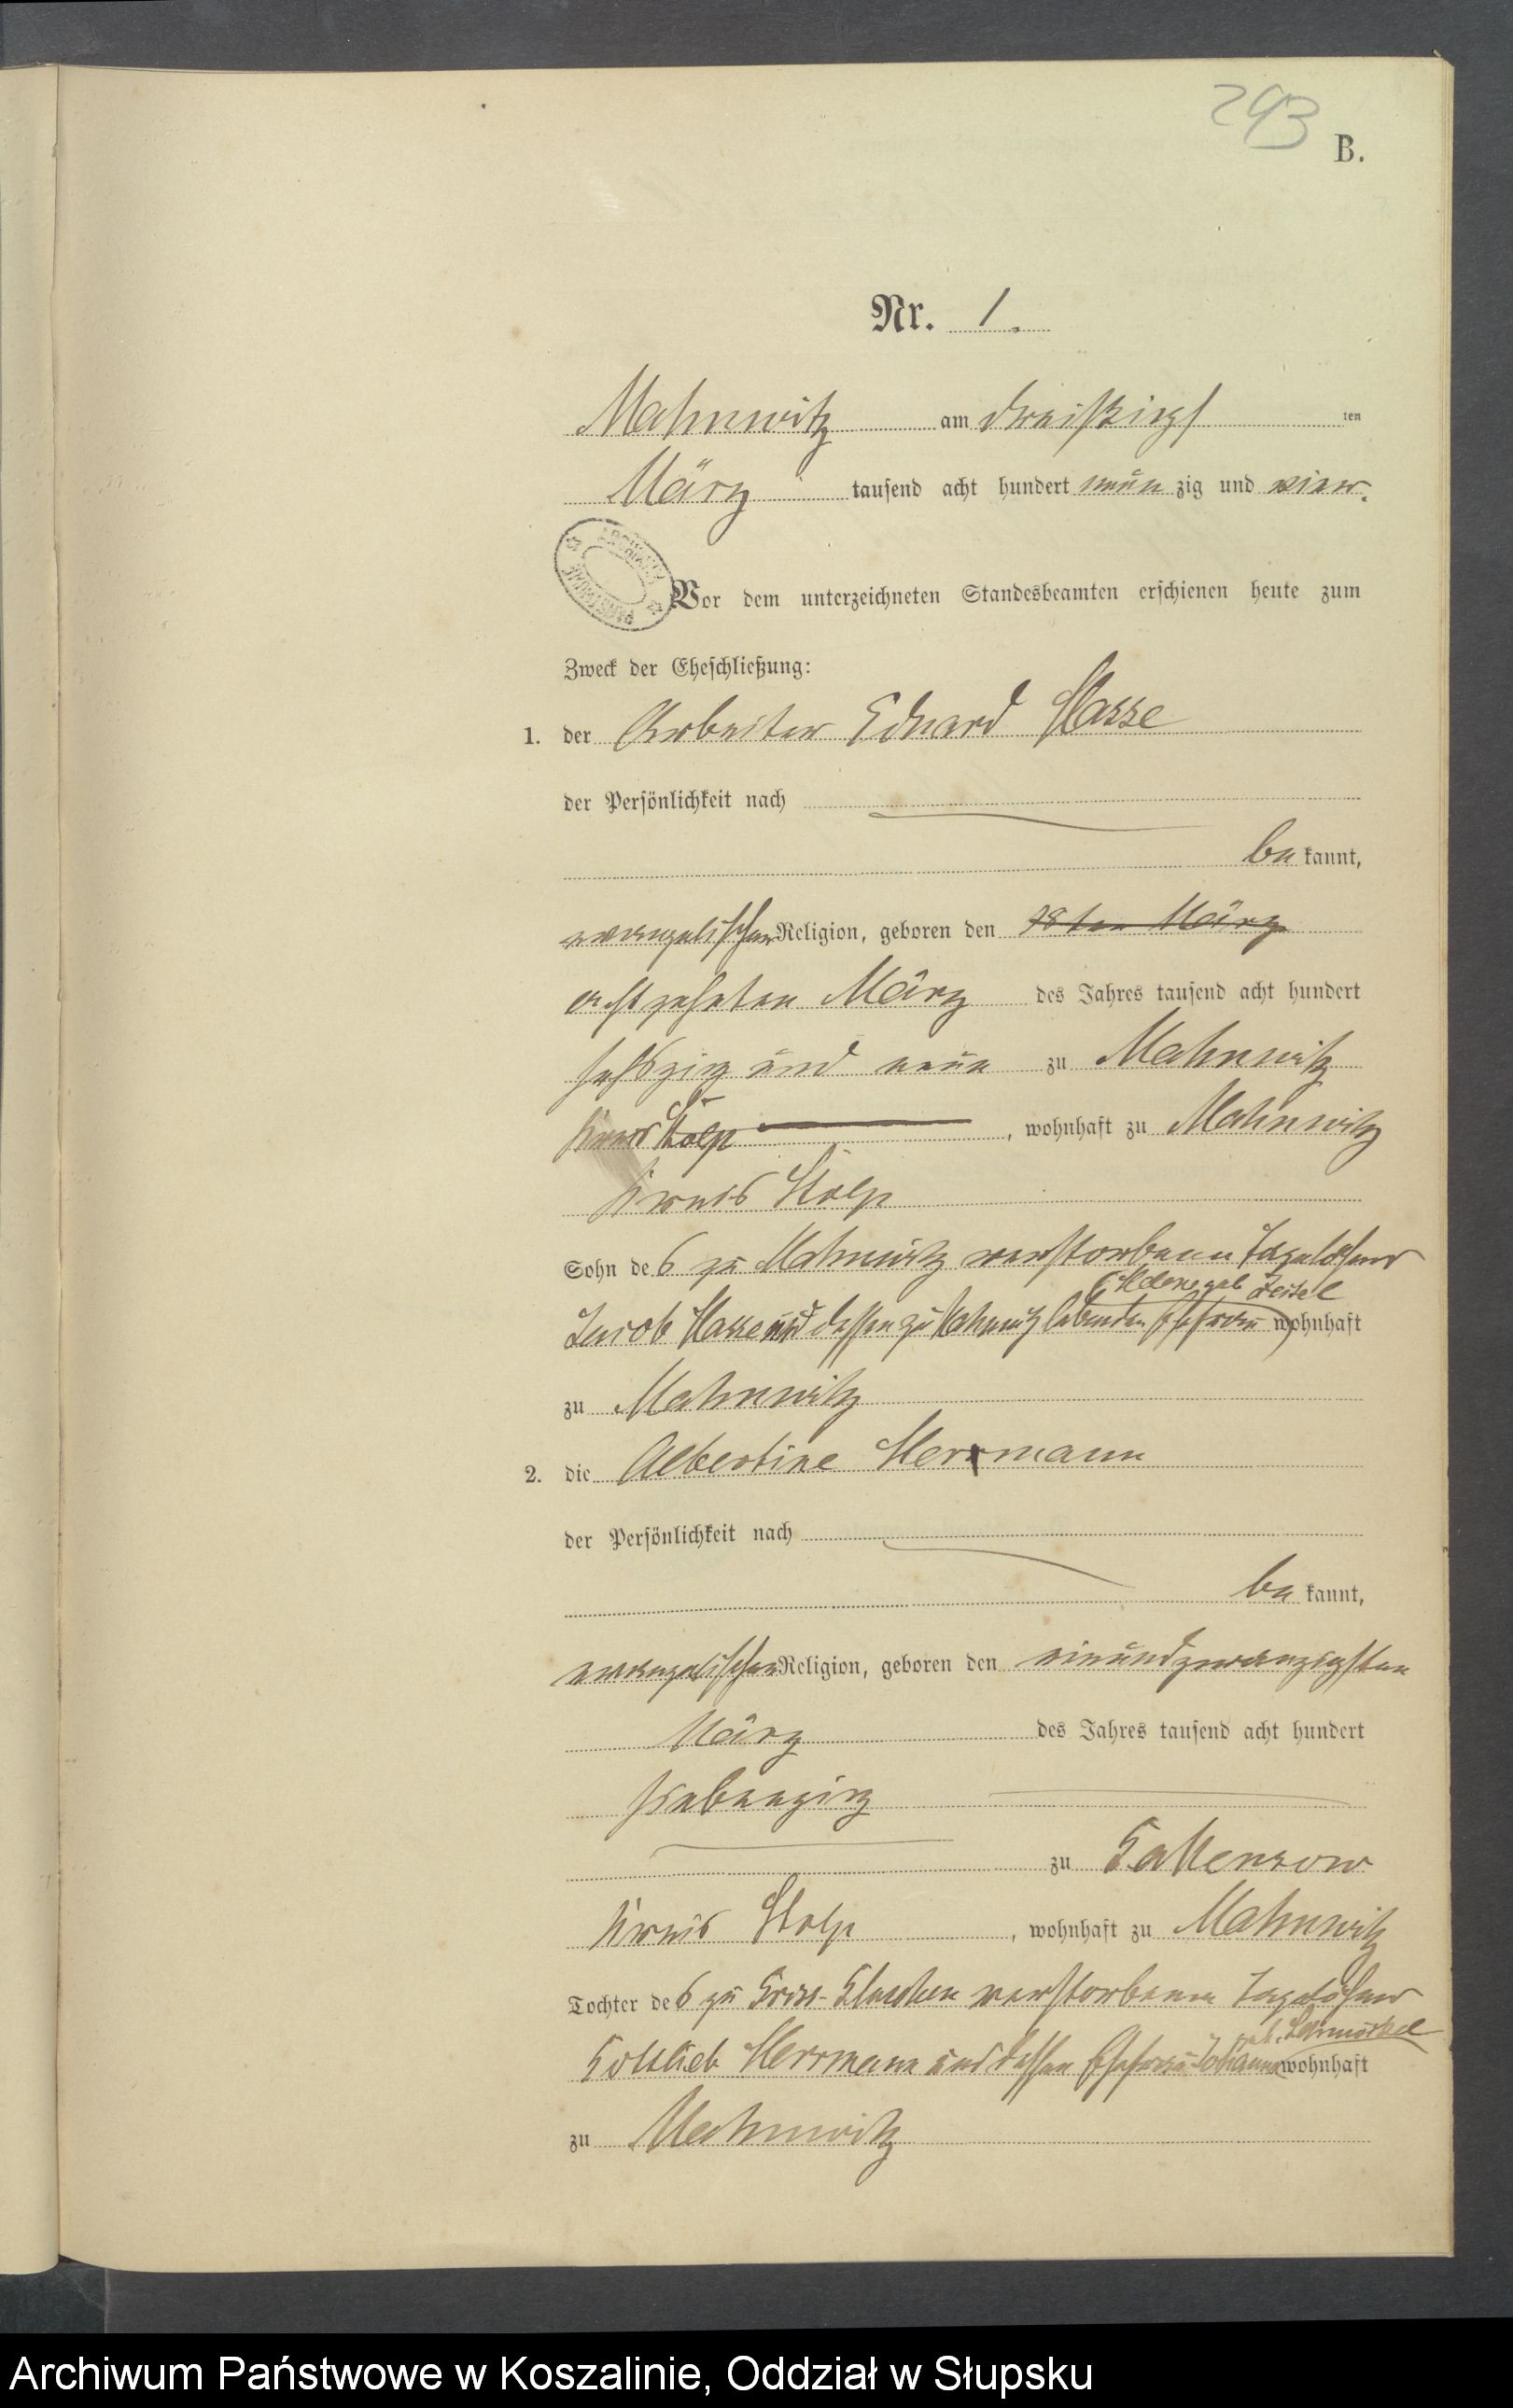 293
B.
Nr. 1.
Mahnwitz am dreißigs ten
März tausend acht hundert neun zig und vier.
Vor dem unterzeichneten Standesbeamten erschienen heute zum
Zweck der Eheschließung:
1. der Arbeiter Eduard Hasse
der Persönlichkeit nach
be kannt,
evangelischer Religion, geboren den 18ten März
achtzehnten März des Jahres tausend acht hundert
sechszig und neun zu Mahnwitz
Kreis Stolp, wohnhaft zu Mahnwitz
Kreis Stolp
Sohn des zu Mahnwitz verstorbenen Tagelöhner
geb
Jacob Hasse und dessen zu Mahnwitz lebenden Ehefrau wohnhaft
zu Mahnwitz
2. die Albertine Herrmann
der Persönlichkeit nach
be kannt,
evangelischer Religion, geboren den einundzwanzigsten
März des Jahres tausend acht hundert
siebenzig
zu Gallensow
Kreis Stolp, wohnhaft zu Mahnwitz
Tochter des zu verstorbenen Tagelöhner
geb.
Gottlieb Herrmann und dessen Ehefrau Johanne wohnhaft
zu Mahnwitz
Archiwum Państwowe w Koszalinie, Oddział w Słupsku